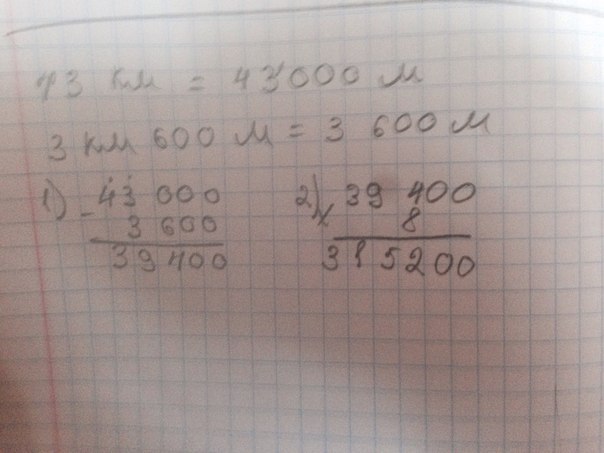 43 км = 43000 м
3 км 600 м = 3 600 м
1) 43 000
- 3 600
39 400
2) 39 400
× 8
315200